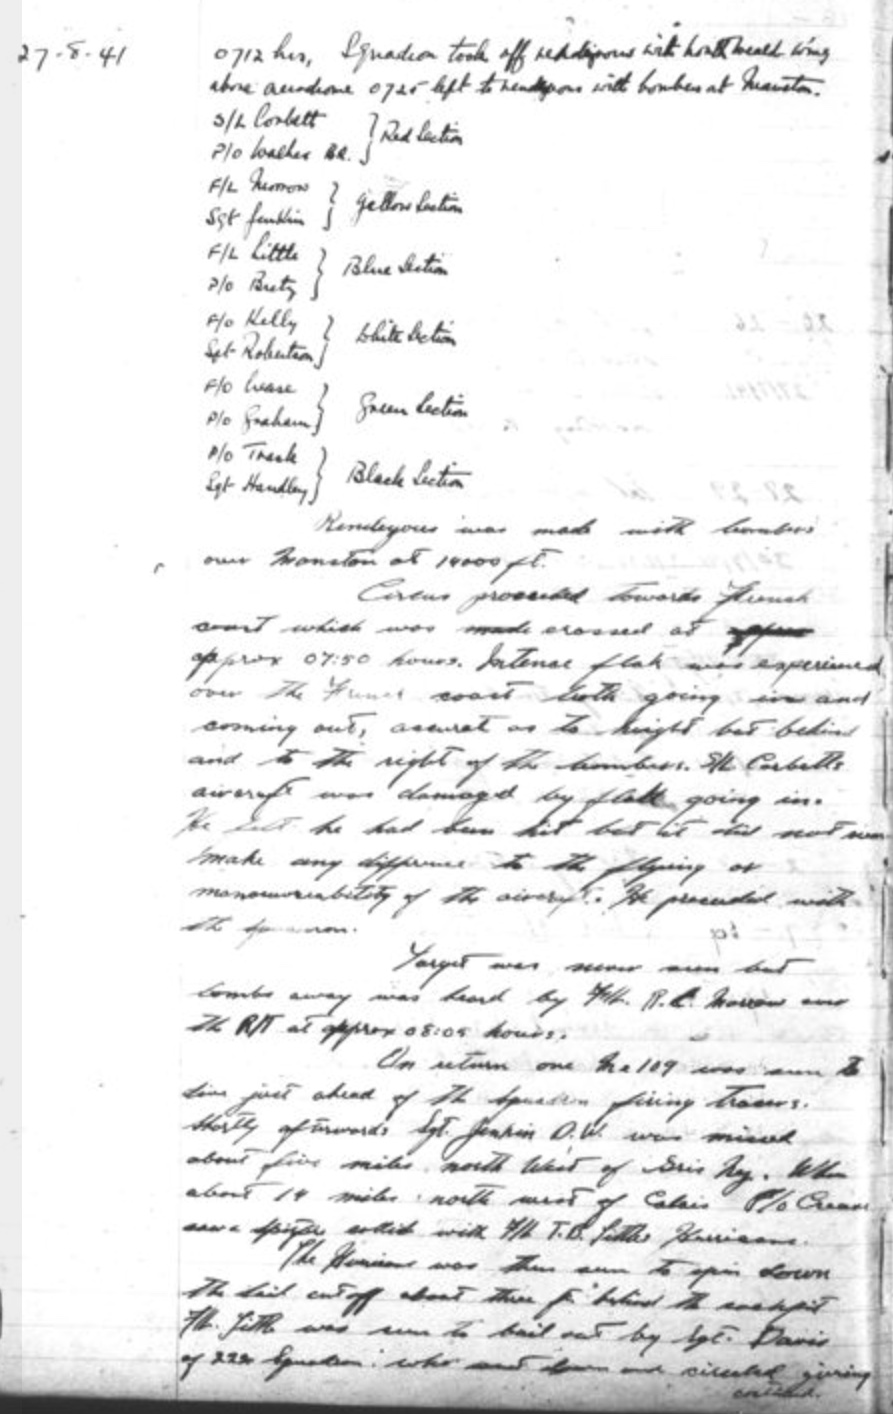 27-8-41 0712 hrs, Squadron took off rendezvous with North Weald wing
above aerodrome 0725 left to rendezvous with bombers at Manston.
S/L Corbett
P/O Walker BR. } Red Section
F/L Morrow
Sgt Jenkin } Yellow Section
F/L Little
P/O } Blue Section
F/O Kelly
Sgt Robertson } White Section
F/O Crease
P/O Graham } Green Section
P/O Trask
Sgt Handley } Black Section
Rendezvous was made with bombers
over Manston at 14000 ft.
Circus proceeded towards French
coast which was made crossed at
approx 07:50 hours. Intense flak was experienced
over the coast both going in and
coming out, accurat as to height but behind
and to the right of the bombers. S/L Corbetts
aircraft was damaged by flak going in.
He felt he had been hit but it did not
make any difference to the flying or
manoeuvreability of the aircraft. He proceeded with
the squadron.
Target was never seen but
bombs away was heard by F/L. R.E. Morrow over
the R/T at approx 08:05 hours.
On return one Me 109 was seen to
dive just ahead of the squadron firing tracers.
Shortly afterwards Sgt. Jenkin D.W. was missed
about five miles north West of Gris Nez. When
about 14 miles north west of Calais P/O Crease
saw a collied with F/L T.B. Littles Hurricane.
The Hurricane was then seen to spin down
the tail cut off about three ft behind the cockpit
F/L. Little was seen to bail out by Sgt. Davis
of 222 Squadron who went down and circled giving